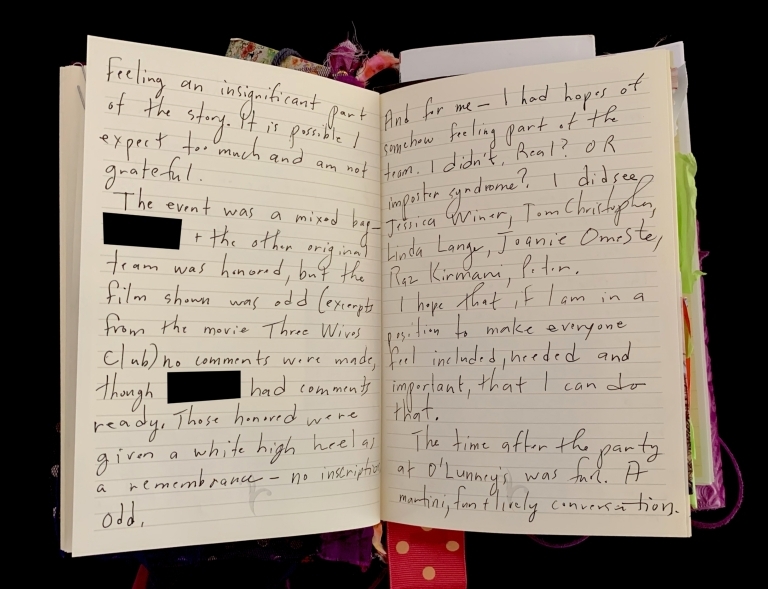 feeling an insignificant part
of the story. It is possible I
expect too much and am not
grateful.
The event was a mixed bag—
+ the other original
team was honored, but the
film shown was odd (excerpts
from the movie Three Wives
Club) no comments were made,
though had comments
ready. Those honored were
given a white high heel as
a remembrance — no inscription
Odd.
And for me — I had hopes of
somehow feeling part of the
team. I didn't. Real? OR
imposter syndrome? I did see
Jessica Winer, Tom Christopher,
Linda Lange, Joanie Omeste,
Raz Kirmani, Peter.
I hope that, if I am in a
position to make everyone
feel included, needed and
important, that I can do
that.
The time after the party
at O'Lunney's was fun. A
martini, fun + lively conversation.